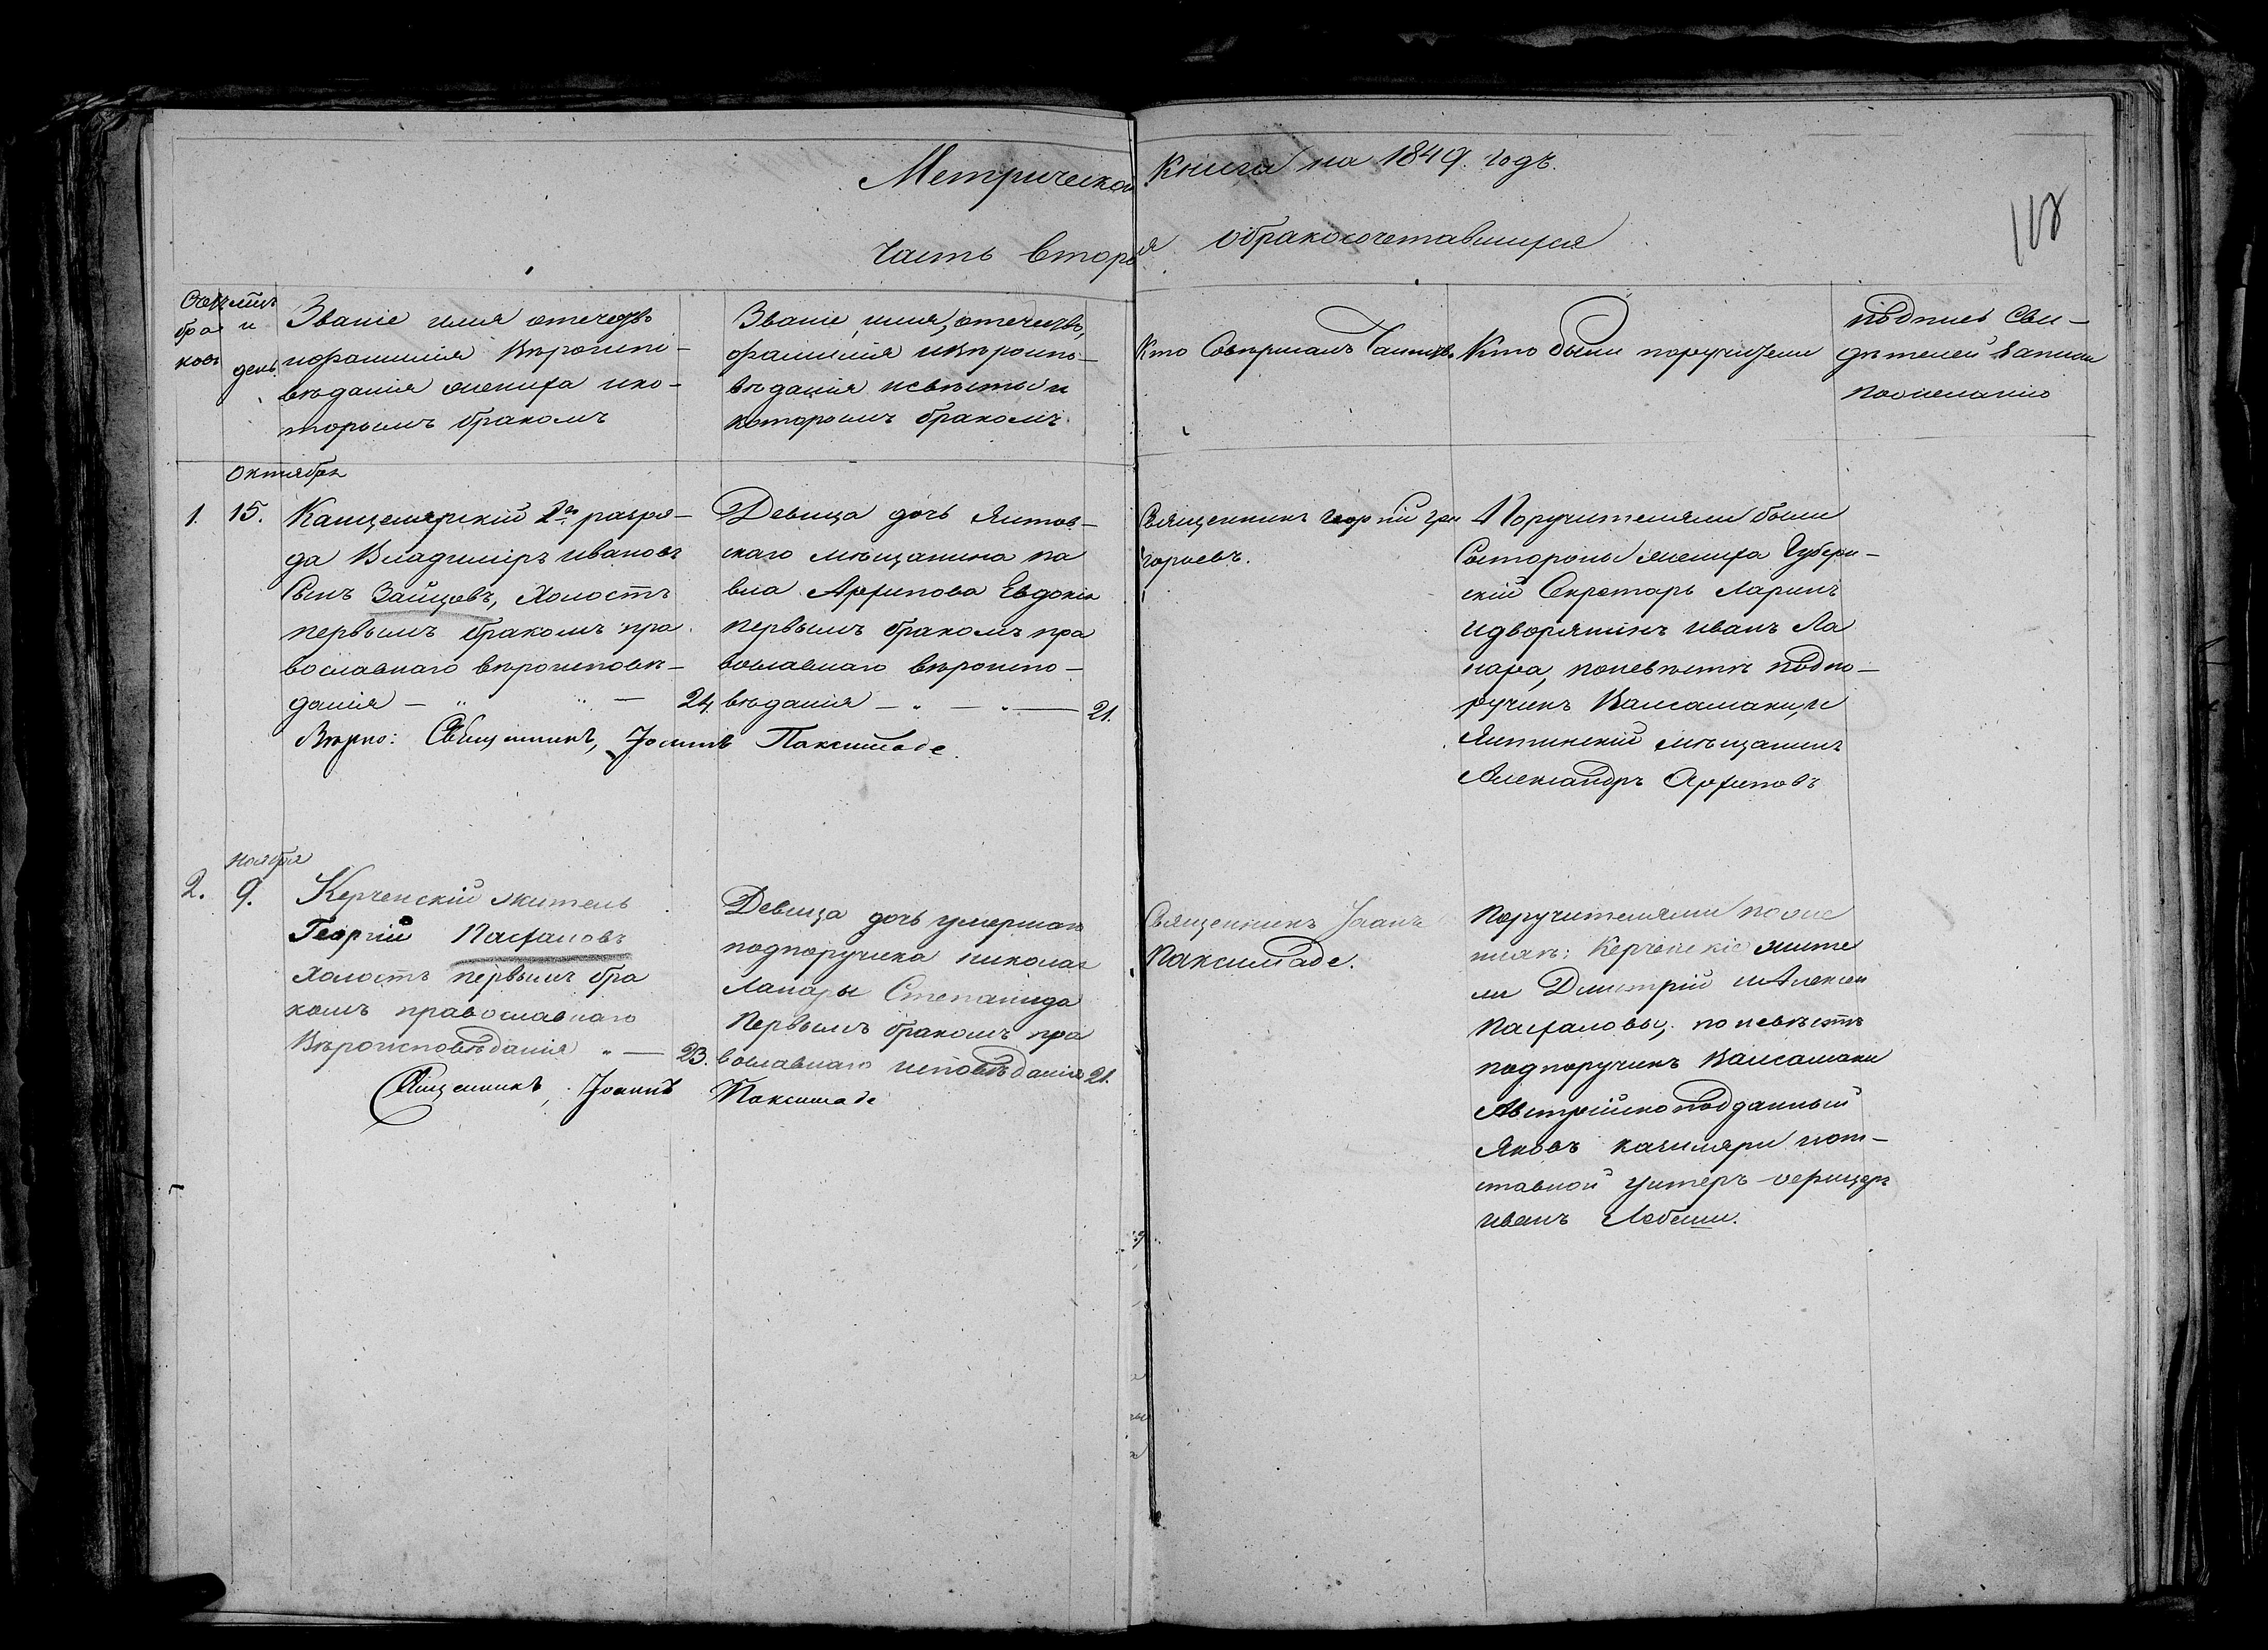 Метрической Книги на 1849. годъ.
108
Часть вторая обракосочетавшихся
Счетъ бра ковъ
мѣць и день.
Званіе имя отечество
ифамилія Вѣроиспо-
вѣданія жениха ико-
торымъ бракомъ
Званіе, имя, отечество,
фамилія ивѣроиспо-
вѣданія невѣсты и
которымъ бракомъ.
Кто Совершалъ Таинство.
Кто были поручители
подпись Сви-
дѣтелей записи
пожеланію
Октября
1. 15.
Канцелярскій 2го разря-
да Владимiръ ивановъ
Сынъ Зайцовъ, Холостъ
первымъ бракомъ пра
вославнаго вѣроисповѣ-
данія — " " — 24.
Девица дочь Ялтов-
скаго мѣщанина па
вла Архипова Евдокія
первымъ бракомъ пра
вославнаго вѣроиспо-
вѣданія — " — " — 21.
Священникъ георгій гри
горьевъ.
Поручителями были
Состороны жениха Губерн-
скій Секретарь Ларинъ
идворянинъ иванъ Ла
пара, поневѣстѣ подпо-
ручикъ Валсамаки, и
Ялтинскій мѣщанинъ
Александръ Архиповъ
Вѣрно: Священникъ, Іоаннъ Паксимаде.
ноября
2. 9.
Керченскій житель
Георгій Пасхаловъ
Холостъ первымъ бра
комъ православнаго
Вѣроисповѣданія " — 23.
Девица дочь умершаго
подпоручика николая
Лапары Степанида
Первымъ бракомъ пра
вославнаго исповѣданія 21.
Священникъ Іоанъ
Паксимаде.
Поручителями пожe
нихѣ: Керченскіе жите
ли Дмитрій иАлексей
Пасхаловы; поневѣстѣ
подпоручикъ Валсамаки
Австрійскоподданный
Яковъ иот-
ставной унтеръ-офицеръ
иванъ
Священникъ, Іоаннъ Паксимаде